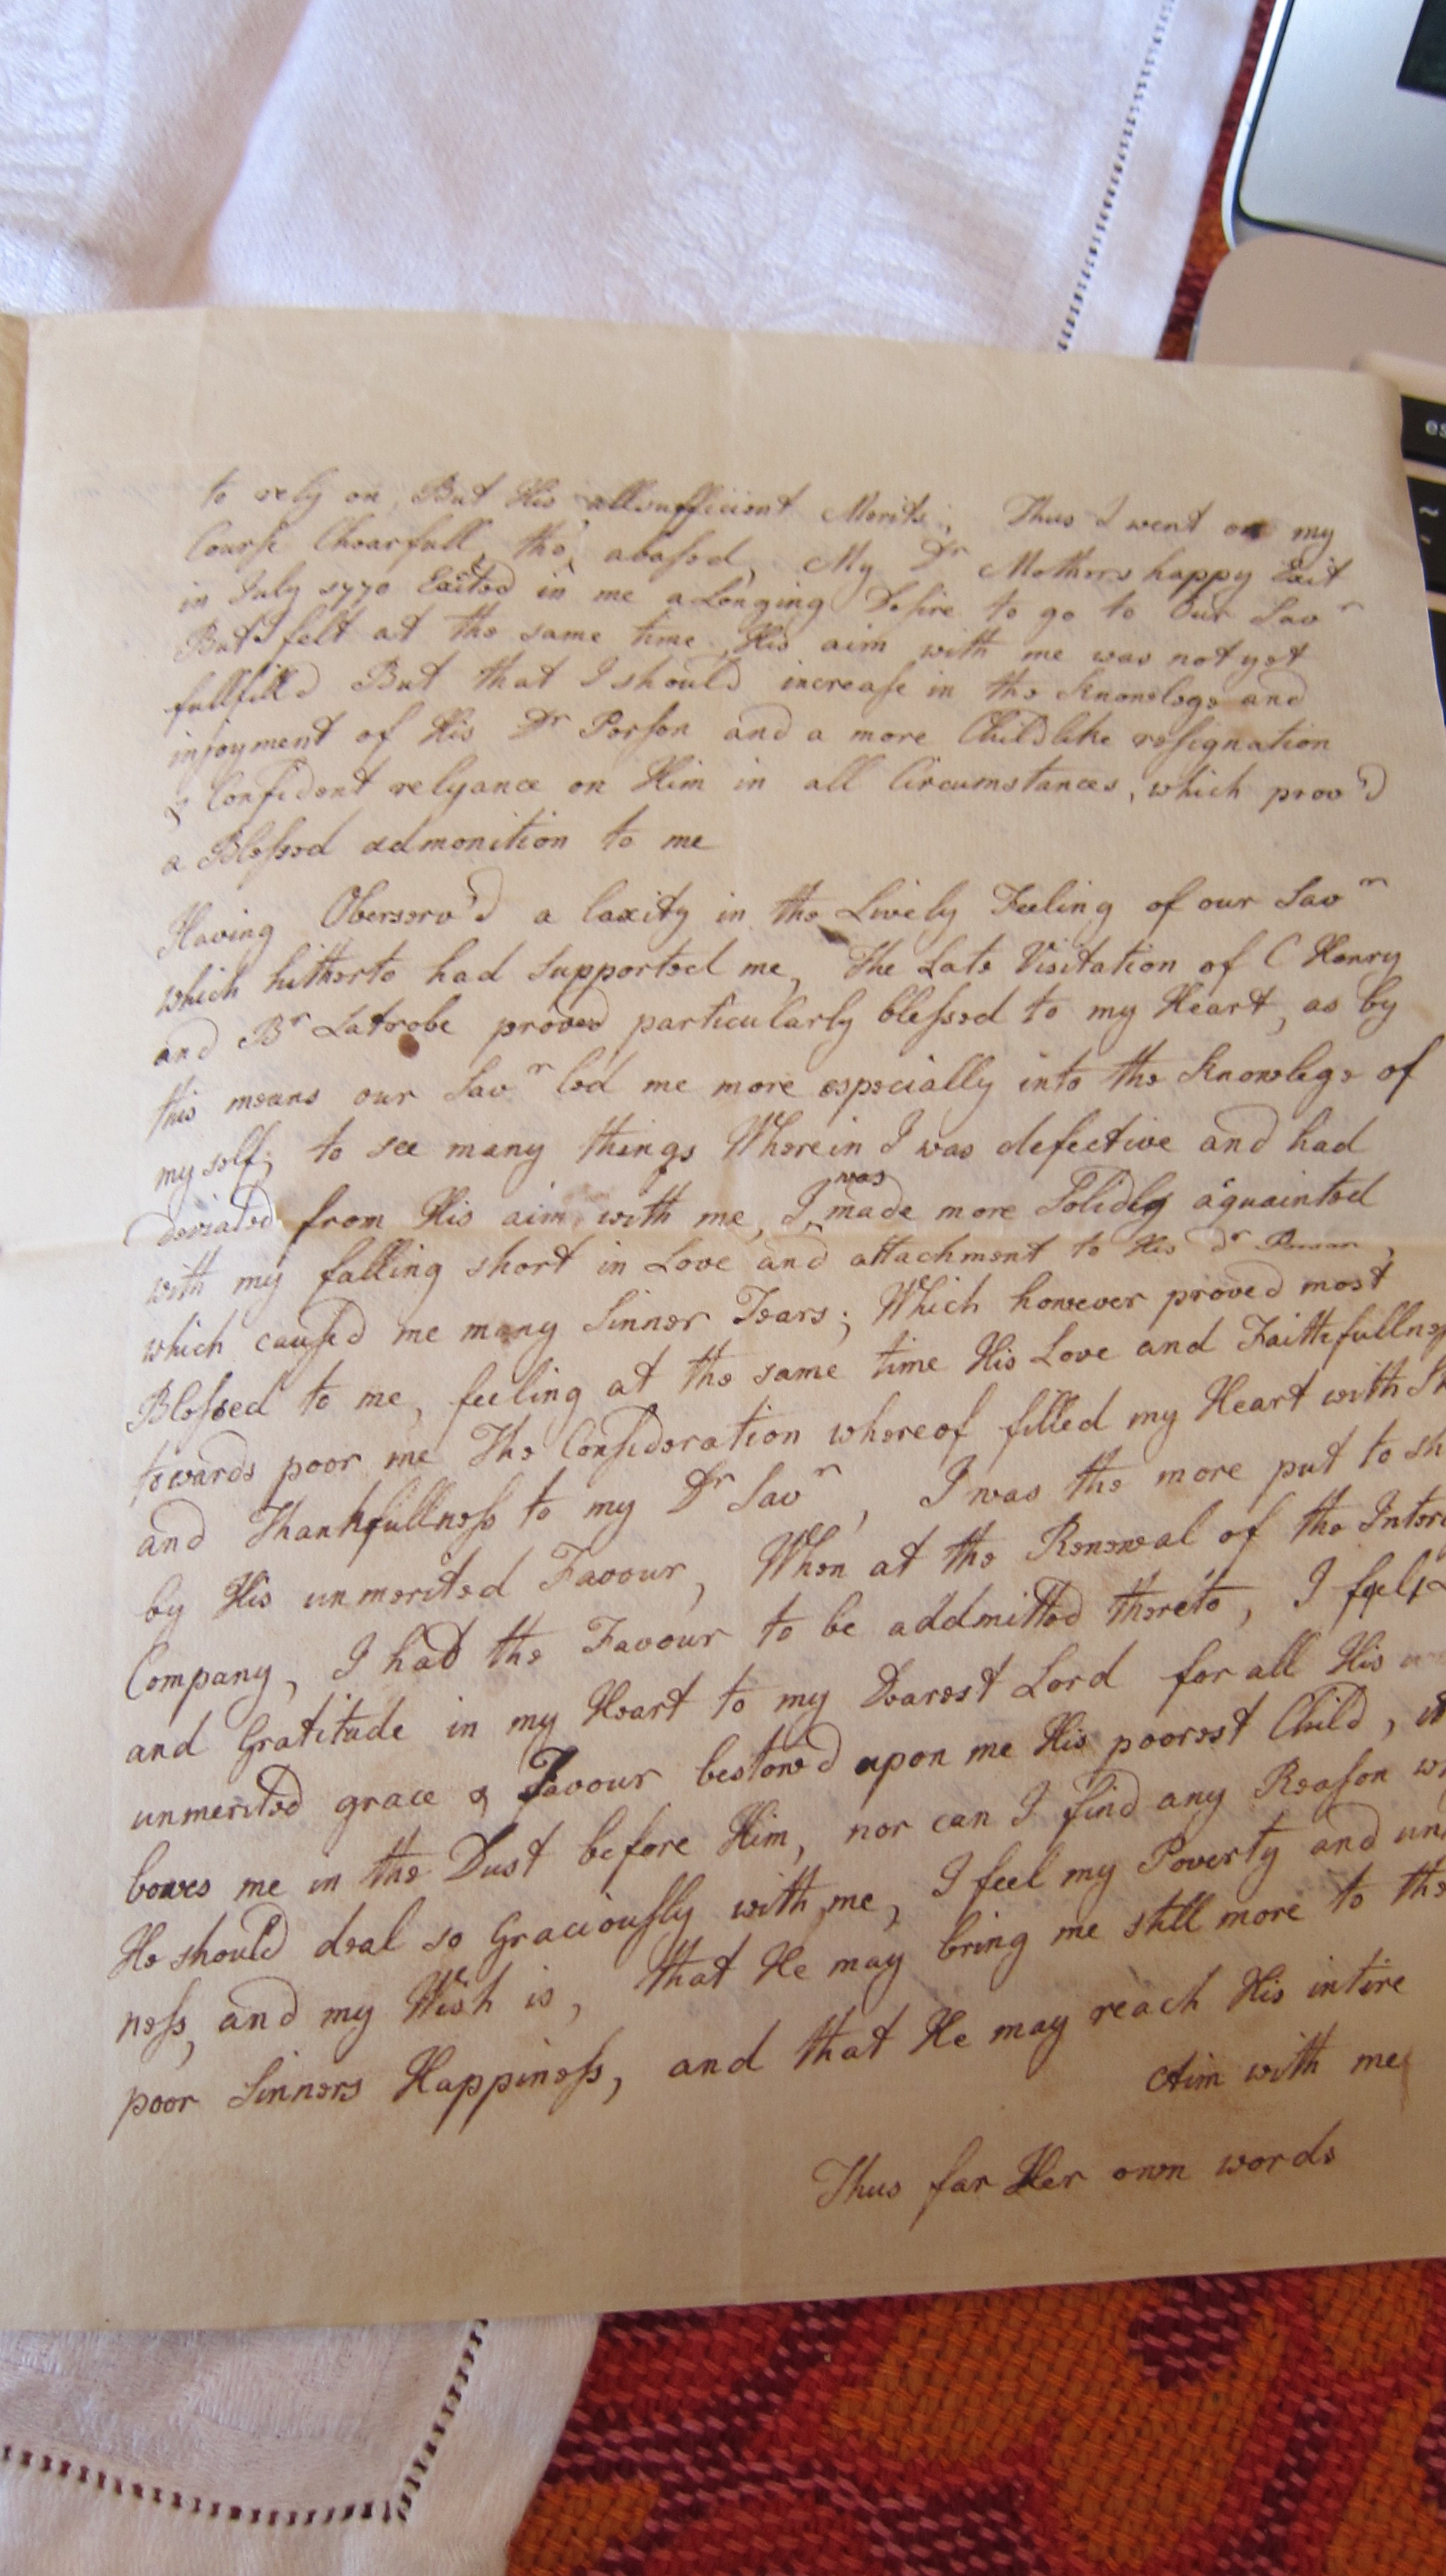 to rely on, But His allsufficient Merits, Thus I went on my
Course Chearfull, tho' abased, My Dr Mothers happy Exit
in July 1770 Excited in me a Longing Desire to go to Our Savr
But I felt at the same time His aim with me was not yet
fullfill'd But that I should increase in the Knowlege and
injoyment of His Dr Person and a more Childlike resignation
& Confident relyance on Him in all Circumstances, which prov'd
a Blessed admonition to me
Having Oberserv'd a laxity in the Lively Feeling of our Savr
which hitherto had supported me, The Late Visitation of C Henry
and Br Latrobe proved particularly blessed to my Heart, as by
this means our Savr led me more especially into the Knowlege of
my self; to see many things Wherein I was defective and had
deviated from His aim with me, I was made more Solidly aquainted
with my falling short in Love and attachment to His Dr Person,
which caused me many Sinner Tears; Which however proved most
Blessed to me, feeling at the same time His Love and Faithfullness
towards poor me The Consideration whereof filled my Heart with Sh
and Thankfullness to my Dr Savr, I was the more put to sh
by His unmerited Favour, When at the Renewal of the Interc
Company, I had the Favour to be addmitted thereto, I feel
and Gratitude in my Heart to my Dearest Lord for all His
unmerited grace & Favour bestow'd upon me His poorest Child, it
bowes me in the Dust before Him, nor can I find any Reason w
He should deal so Graciously with me, I feel my Poverty and un
ness, and my Wish is, that He may bring me still more to the
poor Sinners Happiness, and that He may reach His intire
Aim with me
Thus far Her own words
es
~